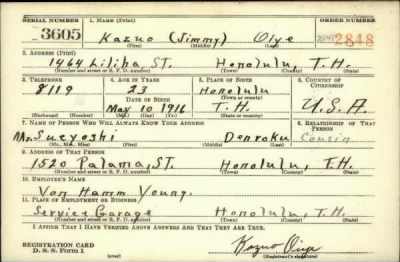 SERIAL NUMBER 1. NAME (Print) ORDER NUMBER
3605 Kazuo (Jimmy) Oiye 2848
(First) (Middle) (Last)
2. ADDRESS (Print)
1464 Liliha ST. Honolulu, T.H.
(Number and street or R. F. D. number) (Town) (County) (State)
3. TELEPHONE 4. AGE IN YEARS 5. PLACE OF BIRTH 6. COUNTRY OF CITIZENSHIP
8119 23 Honolulu
DATE OF BIRTH (Town or county)
May 10 1916 T.H. U.S.A
(Exchange) (Number) (Mo.) (Day) (Yr.) (State or country)
7. NAME OF PERSON WHO WILL ALWAYS KNOW YOUR ADDRESS 8. RELATIONSHIP OF THAT PERSON
Mr. Sueyoshi Denroku Cousin
(Mr., Mrs., Miss) (First) (Middle) (Last)
9. ADDRESS OF THAT PERSON
1520 Palama, ST. Honolulu, T.H.
(Number and street or R. F. D. number) (Town) (County) (State)
10. EMPLOYER'S NAME
Von Hamm Young.
11. PLACE OF EMPLOYMENT OR BUSINESS
Service Garage Honolulu, T.H.
(Number and street or R. F. D. number) (Town) (County) (State)
I AFFIRM THAT I HAVE VERIFIED ABOVE ANSWERS AND THAT THEY ARE TRUE.
REGISTRATION CARD Kazuo Oiye
D. S. S. Form 1 (over) (Registrant's signature)